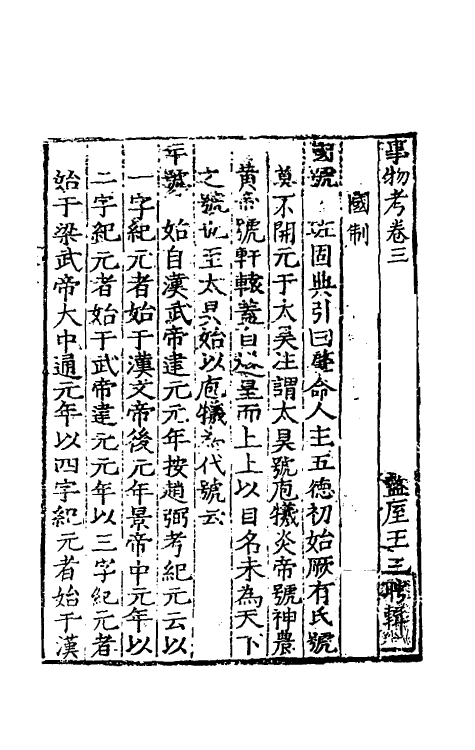 事物考卷三 盩厔王三聘輯
國制
國號 班固典引曰肇命人主五德初始厥有氏號
莫不開元于太昊注謂太昊號庖犧炎帝號神農
黃帝號軒轅蓋自人皇而上上以目名未為天下
之號也至太昊始以庖犧為代號云
年號 始自漢武帝建元元年按趙弼考紀元云以
一字紀元者始于漢文帝後元年景帝中元年以
二字紀元者始于武帝建元元年以三字紀元者
始于梁武帝大中通元年以四字紀元者始于漢